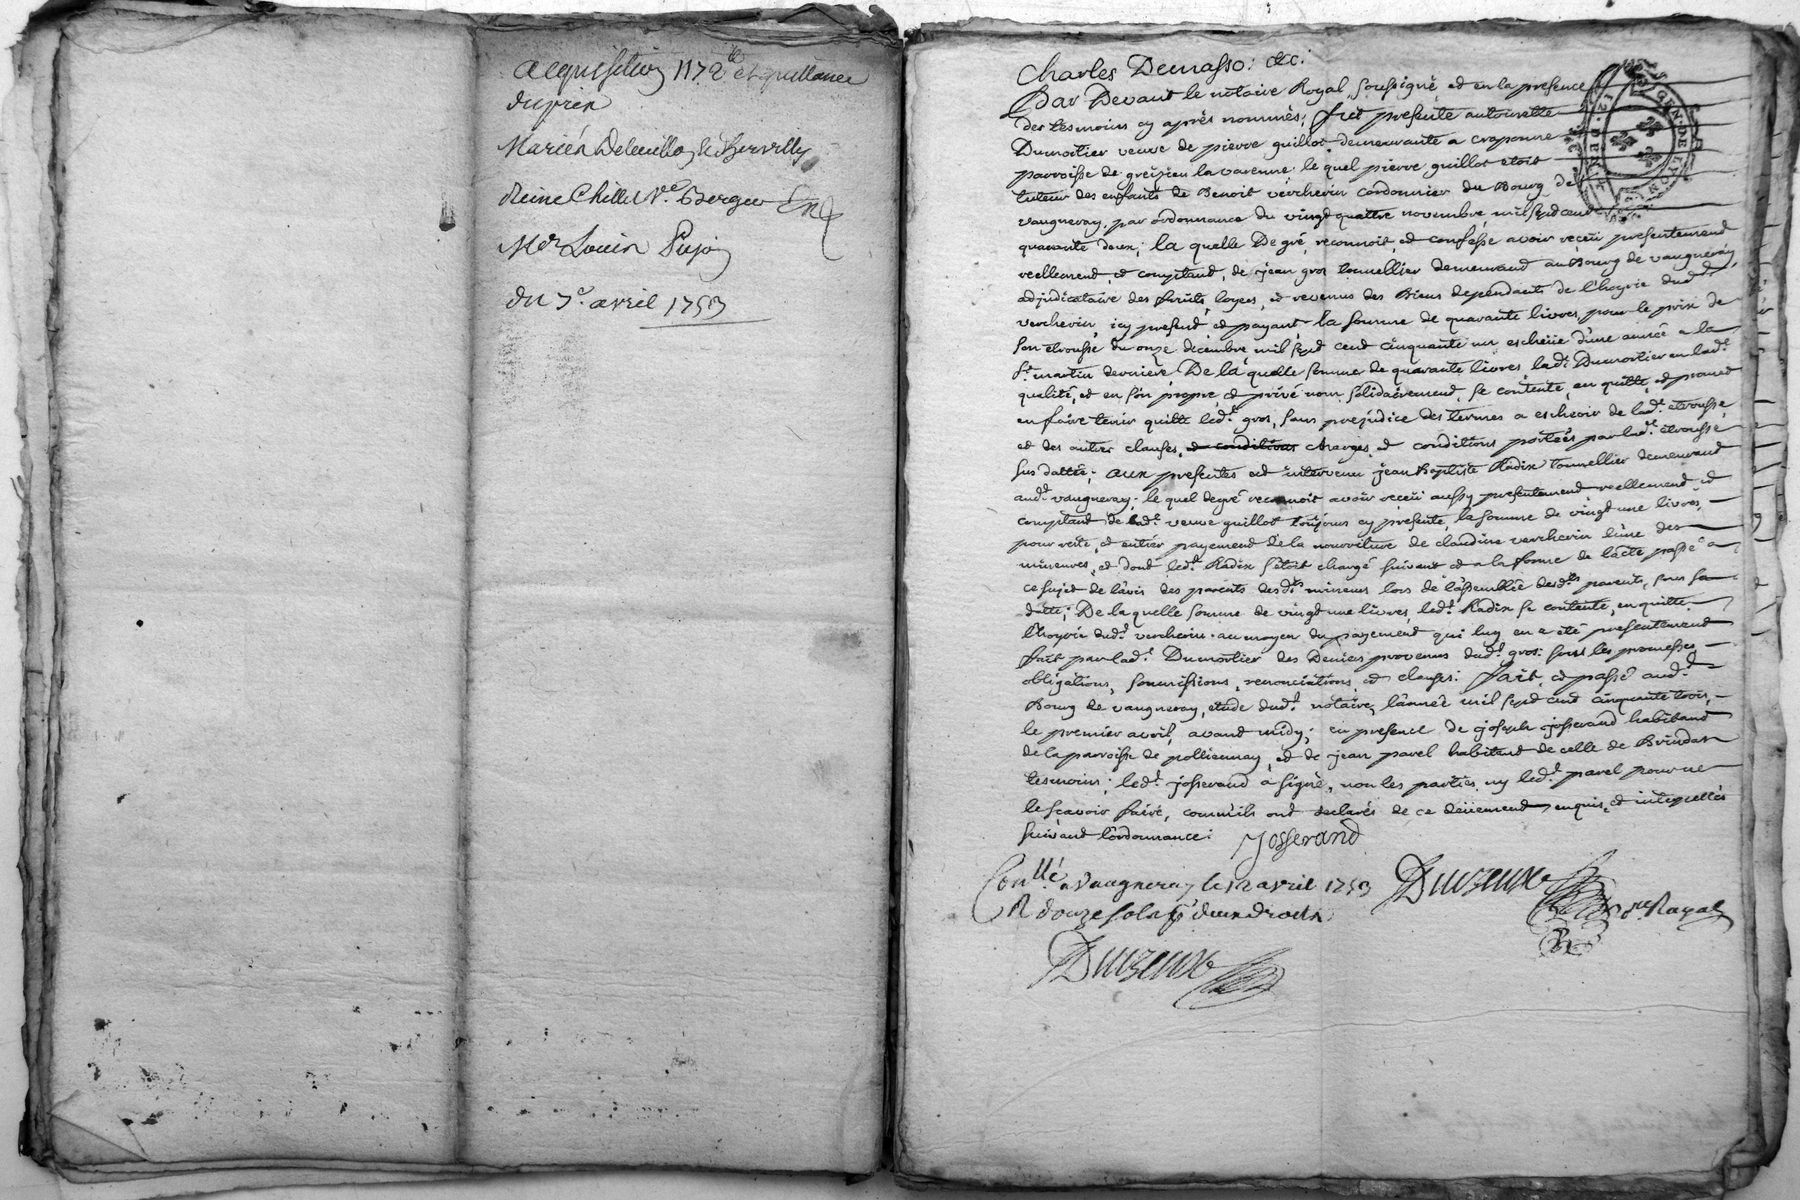 acquisition 1172# et quittance
du prix
Mariés Deleuillon & Thervilly
Reine Chille Ve. Berger
Me Louis Pujo
du 7e. avril 1753
Charles Demasso: &c:
Par Devant le notaire Royal, soussigné, et en la presence
des tesmoins cy aprés nommés; fut presente antoinette
Dumortier veuve de pierre guillot demeurante a craponne
parroisse de greizieu la varenne, le quel pierre guillot etoit
tuteur des enfants de Benoit vercherin cordonnier du Bourg de
vaugneray, par ordonnance du vingt quattre novembre mil sept cent
quarante deux; la quelle De gré, reconnoit, et confesse avoir reçeü presentement
reellement, et comptant, de jean gros tonnellier demeurant au Bourg de vaugneray,
adjudicataire des fruits, loyers, et revenus des Biens dependants de l'hoyrie dudt.
vercherin, icy present, et payant la somme de quarante livres, pour le prix de
son etrousse du onze decembre mil sept cent cinquante un escheüe d'une année a la
St. martin derniere, De la quelle somme de quarante livres, ladt. Dumortier en ladt.
qualité, et en son propre, et privé nom solidairement, se contente, en quitte, et promet
en faire tenir quitte ledt. gros, sans prejudice des termes a escheoir de ladt. etrousse,
et des autres clauses, et conditions charges, et conditions portées par ladt. etrousse
sus dattée; aux presentes est intervenu jean Baptiste Radix tonnellier demeurant
audt. vaugneray, le quel degré reconnoit avoir reçeü aussy presentement reellement et
comptant de ladt. veuve guillot toujours cy presente, la somme de vingt une livres,
pour reste, et entier payement de la nourriture de claudine vercherin l'une des
mineures, et dont ledt. Radix s'etoit chargé suivant et a la forme de l'acte passé a
ce sujet de l'avis des parents desdts. mineurs lors de l'assemblée desdts. parents, sous sa
datte; De la quelle somme de vingt une livres, ledt. Radix se contente, en quitte
l'hoyrie dudt. vercherin au moyen du payement qui luy en a eté presentement
fait par ladt. Dumortier des Deniers provenus dudt. gros: sous les promesses
obligations, soumissions, renonciations, et clauses: fait, et passé audt.
Bourg de vaugneray, etude dudt. notaire, l'année mil sept cent cinquante trois,
le premier avril, avant midy; en presence de joseph josserand habitant
de la parroisse de pollionnay, et de jean pavel habitant de celle de Brindas
tesmoins; ledt. josserand a signé, non les parties, ny ledt. pavel pour ne
le sçavoir faire, comm'ils ont declarés de ce deüement enquis, et interpellés
suivant l'ordonnance:
Josserand
Conllé. a Vaugneray le 12 avril 1753
R douze sols pr. deux droits
Duvzeuxe
re Royal
Duvzeuxe
GEN. DE LYON